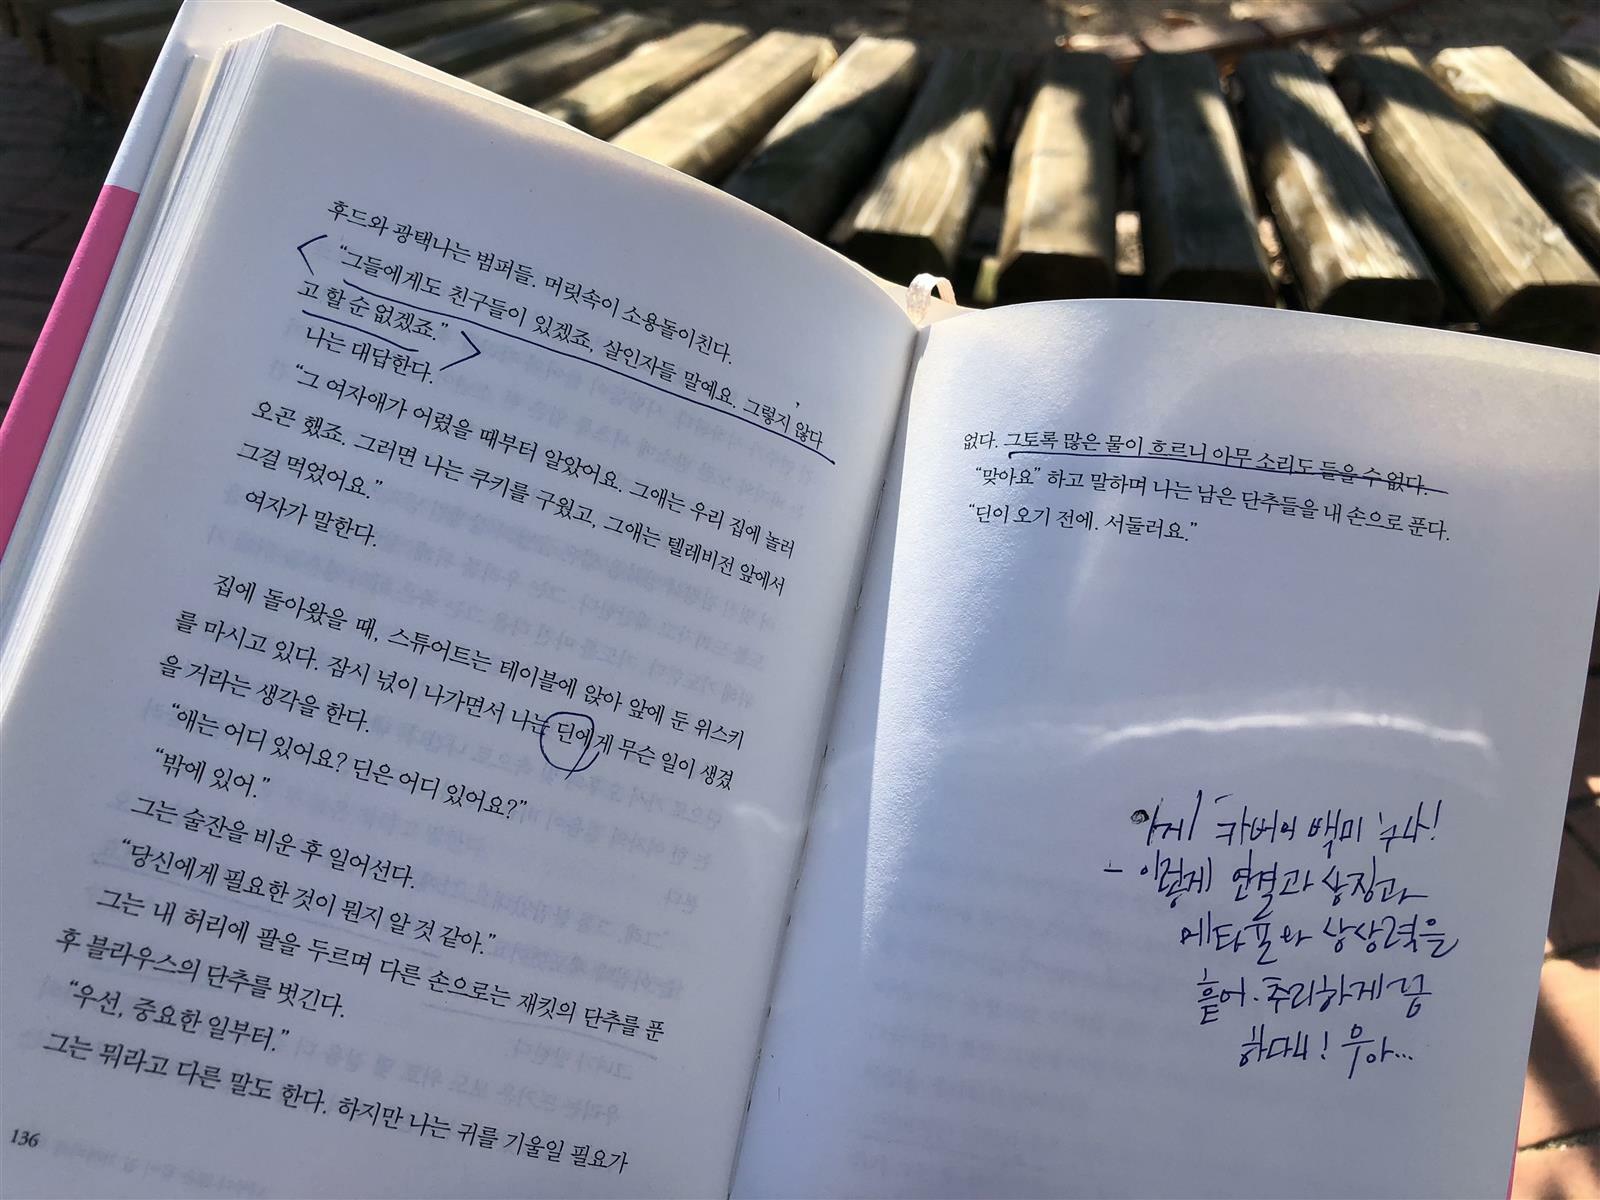 후드와 광택나는 범퍼들. 머릿속이 소용돌이친다.
“그들에게도 친구들이 있겠죠, 살인자들 말예요. 그렇지 않다
고 할 순 없겠죠.”
나는 대답한다.
“그 여자애가 어렸을 때부터 알았어요. 그애는 우리 집에 놀러
오곤 했죠. 그러면 나는 쿠키를 구웠고, 그애는 텔레비전 앞에서
그걸 먹었어요.”
여자가 말한다.
집에 돌아왔을 때, 스튜어트는 테이블에 앉아 앞에 둔 위스키
를 마시고 있다. 잠시 넋이 나가면서 나는 딘에게 무슨 일이 생겼
을 거라는 생각을 한다.
“애는 어디 있어요? 딘은 어디 있어요?”
“밖에 있어.”
그는 술잔을 비운 후 일어선다.
“당신에게 필요한 것이 뭔지 알 것 같아.”
그는 내 허리에 팔을 두르며 다른 손으로는 재킷의 단추를 푼
후 블라우스의 단추를 벗긴다.
“우선, 중요한 일부터.”
그는 뭐라고 다른 말도 한다. 하지만 나는 귀를 기울일 필요가
136
없다. 그토록 많은 물이 흐르니 아무 소리도 들을 수 없다.
“맞아요” 하고 말하며 나는 남은 단추들을 내 손으로 푼다.
“딘이 오기 전에. 서둘러요.”
카버의 백미 구나!
- 이렇게 연결과 상징과
메타퓰와 상상력을
흩어. 추리하게끔
하다니! 우아...